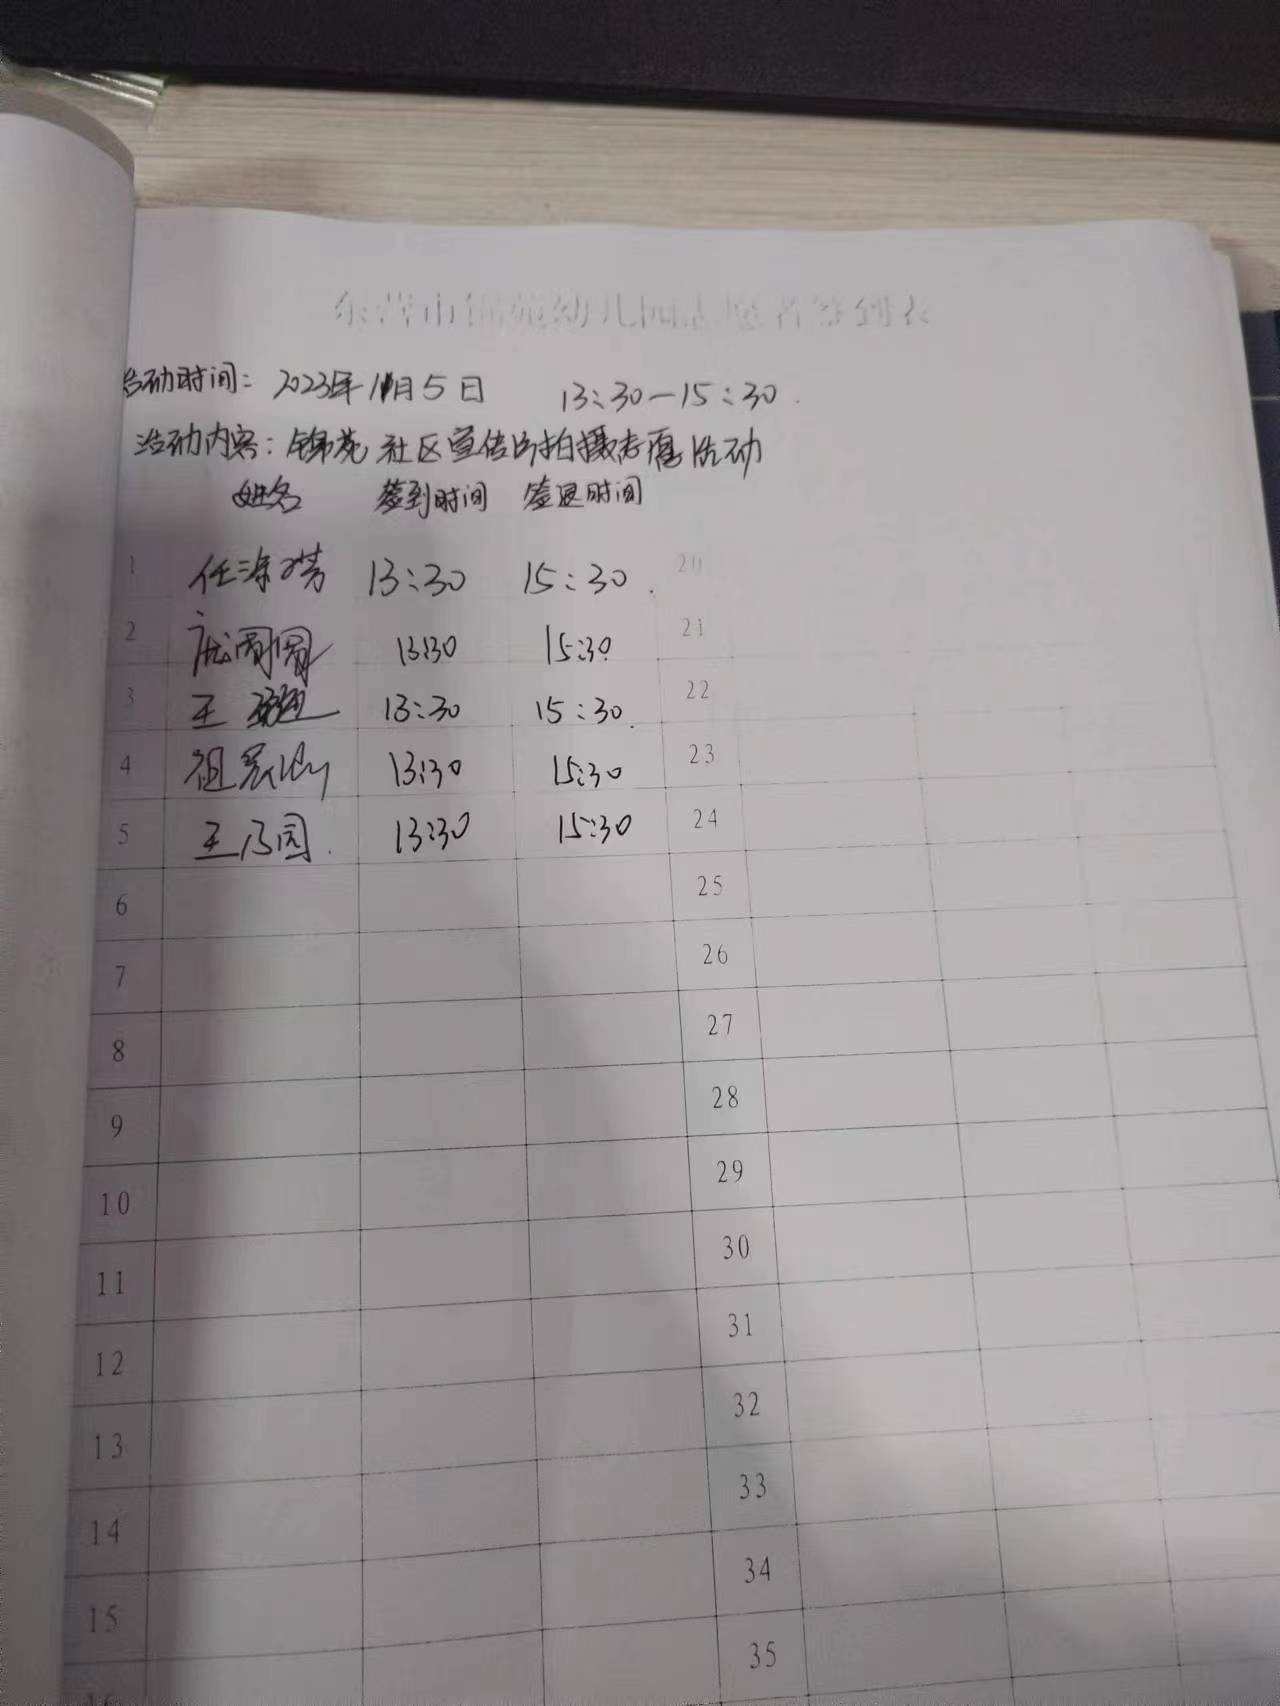 东营市锦苑幼儿园志愿者签到表
活动时间: 2023年11月5日 13:30—15:30.
活动内容: 锦苑社区宣传片拍摄志愿活动
姓名 签到时间 签退时间
1 任 13:30 15:30. 20
2 庞圆圆 13:30 15:30. 21
3 王 13:30 15:30. 22
4 祖 13:30 15:30 23
5 王乃园. 13:30 15:30 24
6 25
7 26
8 27
9 28
10 29
11 30
12 31
13 32
14 33
15 34
16 35